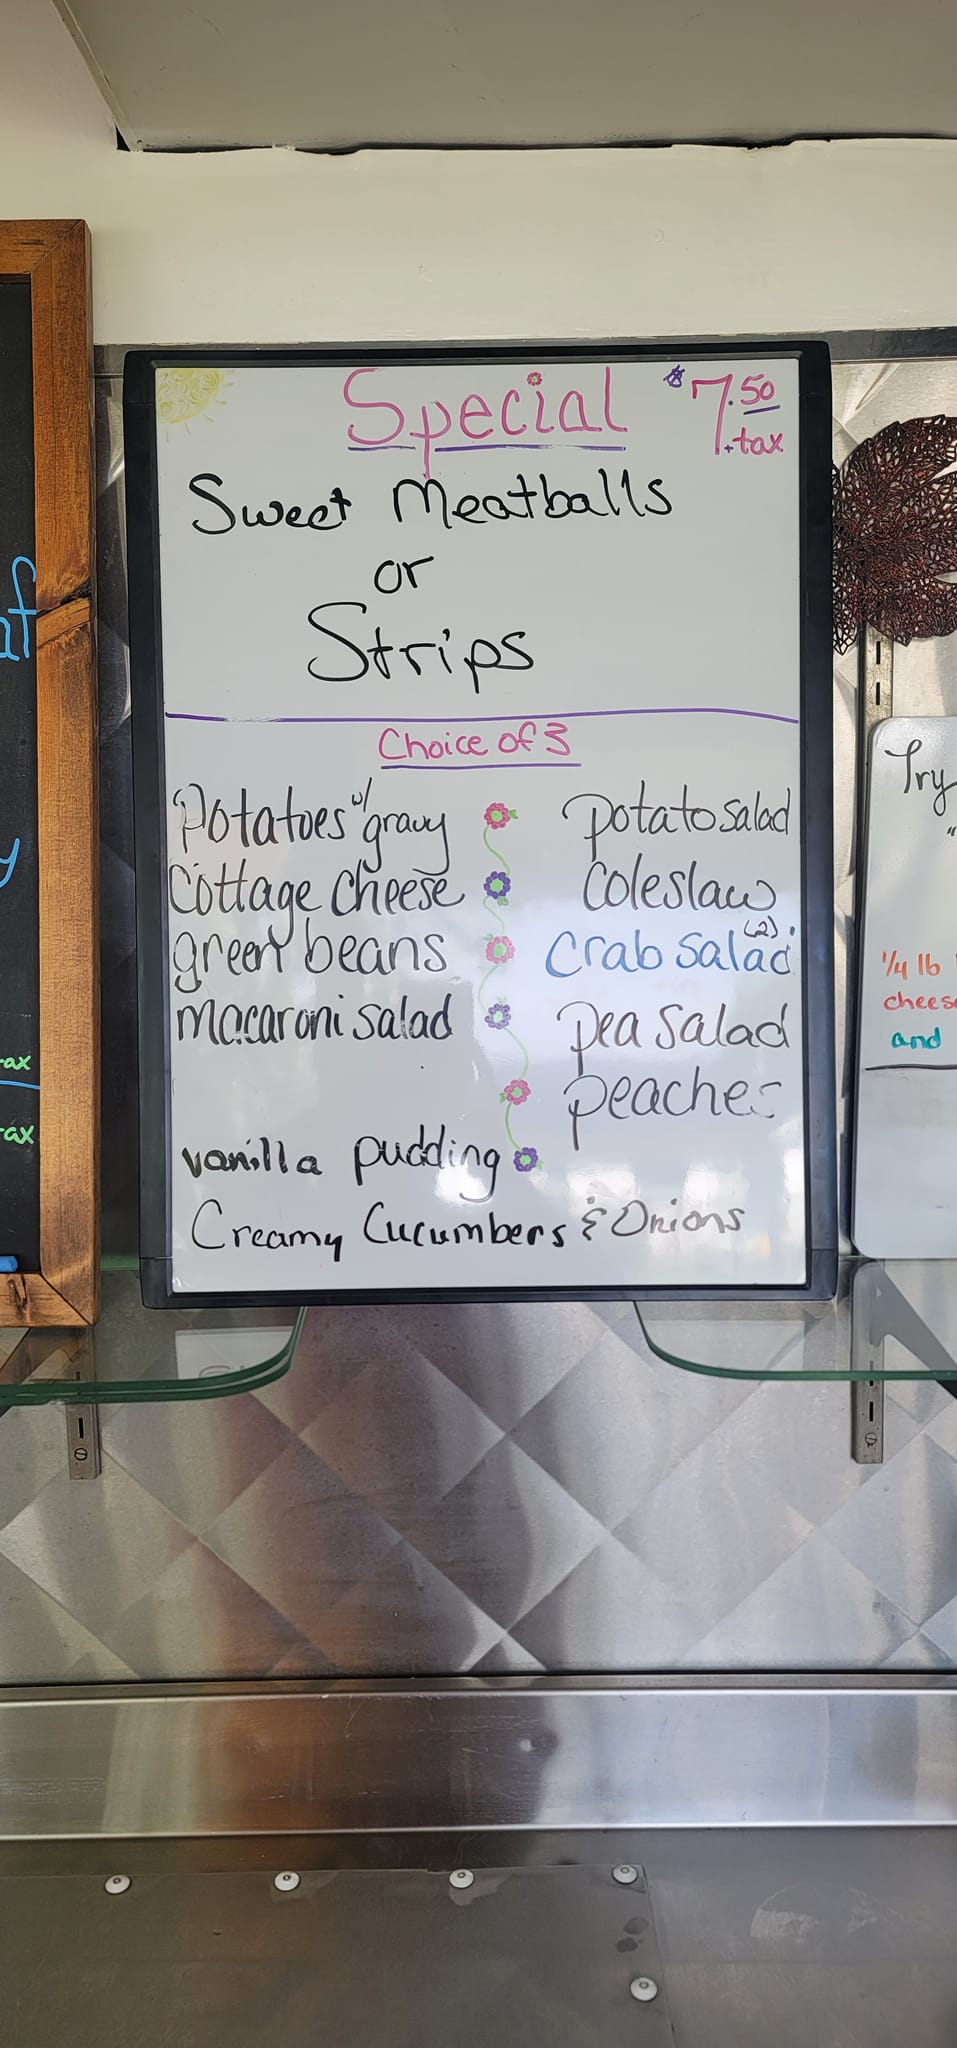 Special $7.50
+tax
Sweet Meatballs
or
Strips
Choice of 3
Potatoes w/ gravy
Cottage cheese
green beans
macaroni salad
potato salad
Coleslaw
Crab salad (2)
pea salad
peaches
vanilla pudding
Creamy Cucumbers & Onions
Try
1/4 lb
and
ax
ax